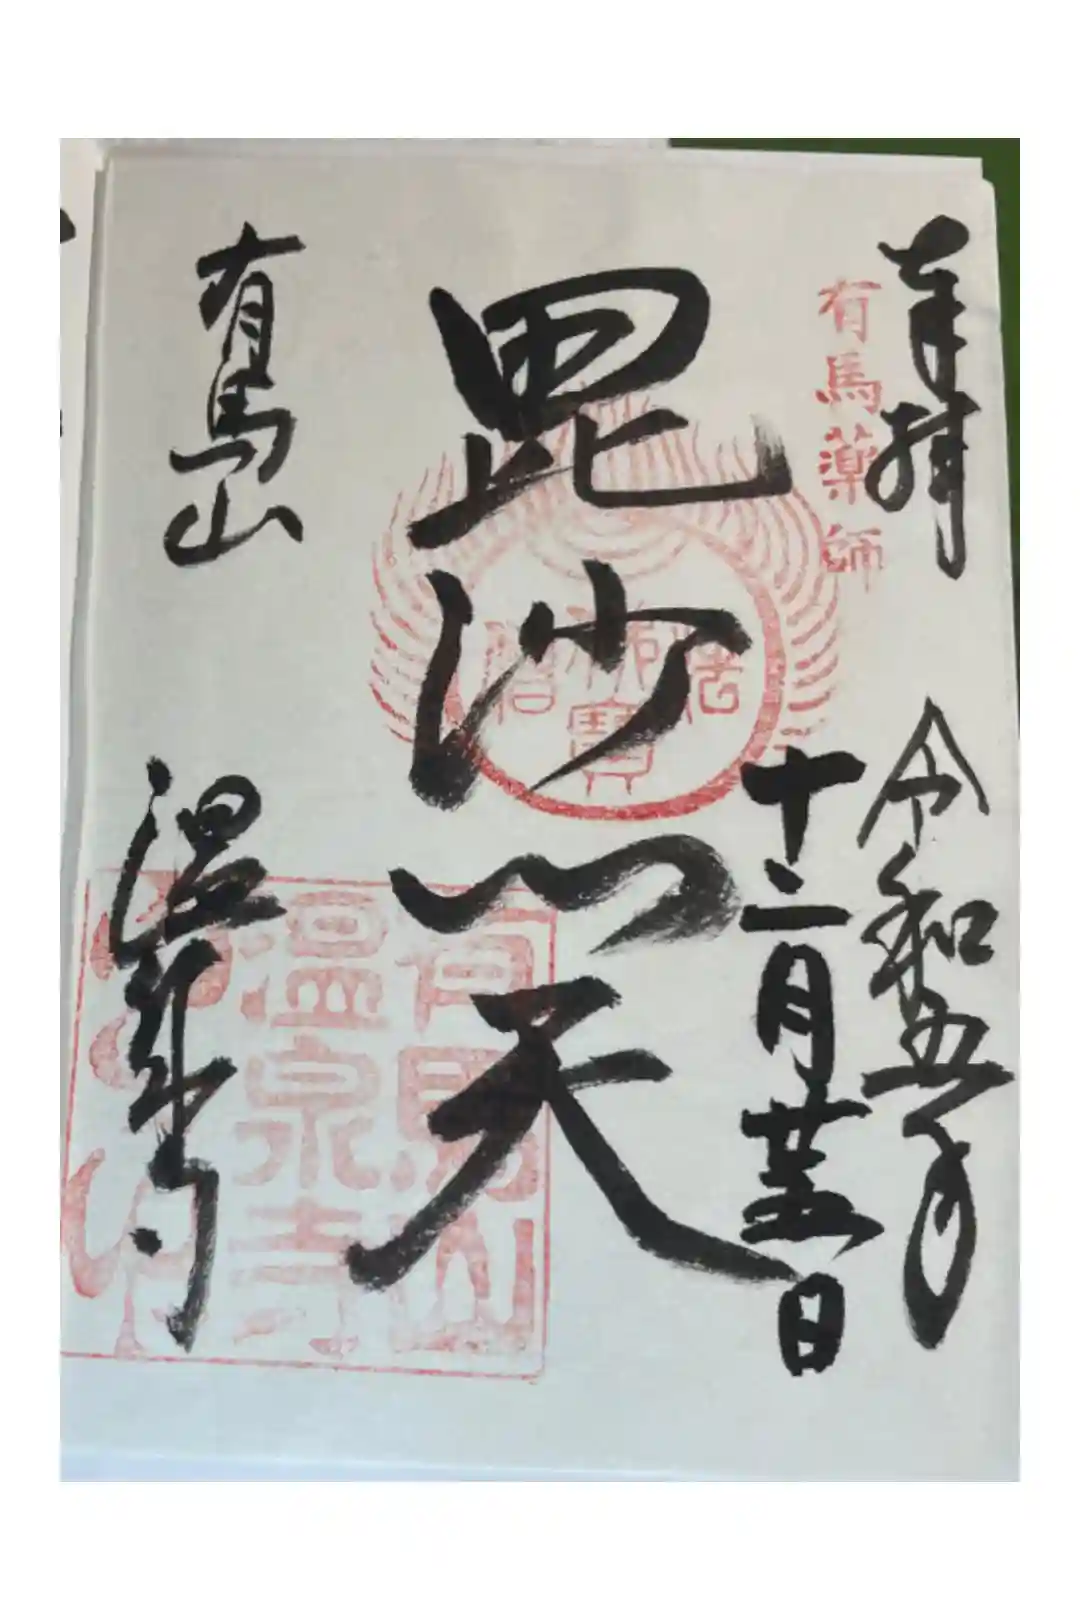 奉拝
有馬薬師
令和五年
十二月廿五日
毘沙門天
佛法僧寶
有馬山
温泉寺
有馬山
温泉寺
之印